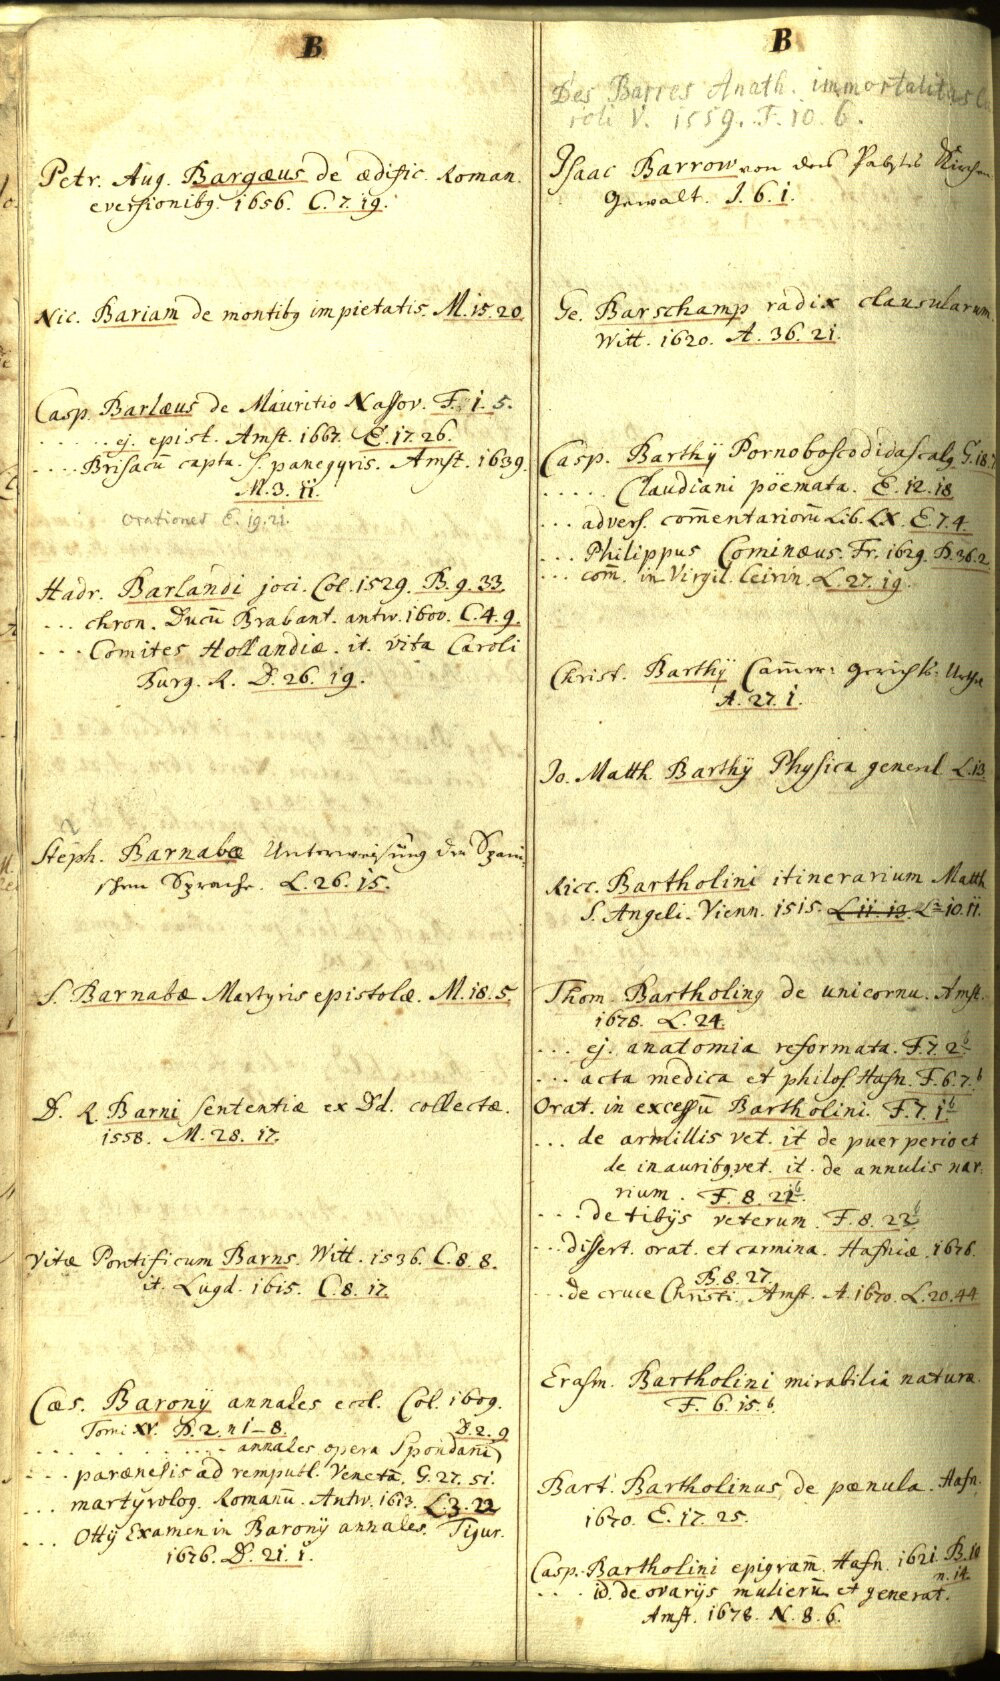 B
Petr. Aug. Bargæus de ædific. Roman.
eversionibg. 1656. C. 7. 19.
Nic. Bariam de montibg impietatis. M. 15. 20
Casp. Barlæus de Mauritio Nassov. F. 1. 5.
. . . . . ej. epist. Amst. 1667. E. 17. 26.
. . . . Brisacū capta. s. panegyris. Amst. 1639.
M. 3. 11.
Orationes E. 19. 21.
Hadr. Barlandi joci. Col. 1529. B. 9. 33.
. . . chron. Ducū Brabant. antw. 1600. C. 4. 9.
. . . Comites Hollandiæ. it. vita Caroli
Burg. R. D. 26. 19.
Steph. Barnabæ Unterweisüng der Spani-
schen Sprache. L. 26. 15.
S. Barnabæ Martyris epistolæ. M. 18. 5
D. R. Barni sententiæ ex Dd. collectæ.
1558. M. 28. 17.
Vitæ Pontificum Barns. Witt. 1536. C. 8. 8.
it. Lugd. 1615. C. 8. 17.
Cæs. Baronÿ annales eccl. Col. 1609.
Tomi XV. D. 2. n 1-8. D. 2. 9
. . . . . . . . . annales opera Spondani
. . . parænesis ad rempubl. Venetā. G. 27. 51.
. . martyrolog. Romanū. Antw. 1613. L. 3. 22
. . . Ottÿ Examen in Baronÿ annales. Tigur.
1676. D. 21. 1.
B
Des Barres Anath. immortalitas Ca
roli V. 1559. F. 10. 6.
Isaac Barrow von des Pabsts Kirchen
Gewalt. J. 6. 1.
Ge. Barschamp radix clausularum.
Witt. 1620. A. 36. 21.
Casp. Barthÿ Pornoboscodidascalg G. 18.
. . . . . Claudiani pöemata. E. 12. 18
. . . advers. com̄entariorū Lib. LX. E. 7. 4.
. . . Philippus Cominæus. Fr. 1629. D. 36. 2
. . . com̄. in Virgil. Ceirin. L. 27. 19.
Christ. Barthÿ Cam̄er: Gerichts: Urthe
A. 27. 1.
Jo. Matth. Barthÿ Physica general. L. 13
Ricc. Bartholini itinerarium Matth
S. Angeli. Vienn. 1515. L. 11. 13. L. 10. 11.
Thom. Bartholing de unicornu. Amst.
1678. L. 24.
. . . ej. anatomia reformata. F. 7. 2b
. . . acta medica et philos. Hafn. F. 6. 7.b
Orat. in excessū Bartholini. F. 7. 1b
. . . de armillis vet. it de puerperio et
de inauribg vet. it. de annulis nar-
rium. F. 8. 21b.
. . . de tibÿs veterum. F. 8. 22b
. . . dissert. orat. et carmina. Hafniæ. 1676.
B. 8. 27.
. . . de cruce Christi. Amst. A. 1670. L. 20. 44
Erasm. Bartholini mirabilia naturæ.
F. 6. 15.b.
Bart. Bartholinus, de pænula. Hafn.
1670. E. 17. 25.
Casp. Bartholini epigram̄. Hafn. 1621. B. 10
n. 14.
. . . id. de ovarÿs mulierū et generat.
Amst. 1678. N. 8. 6.